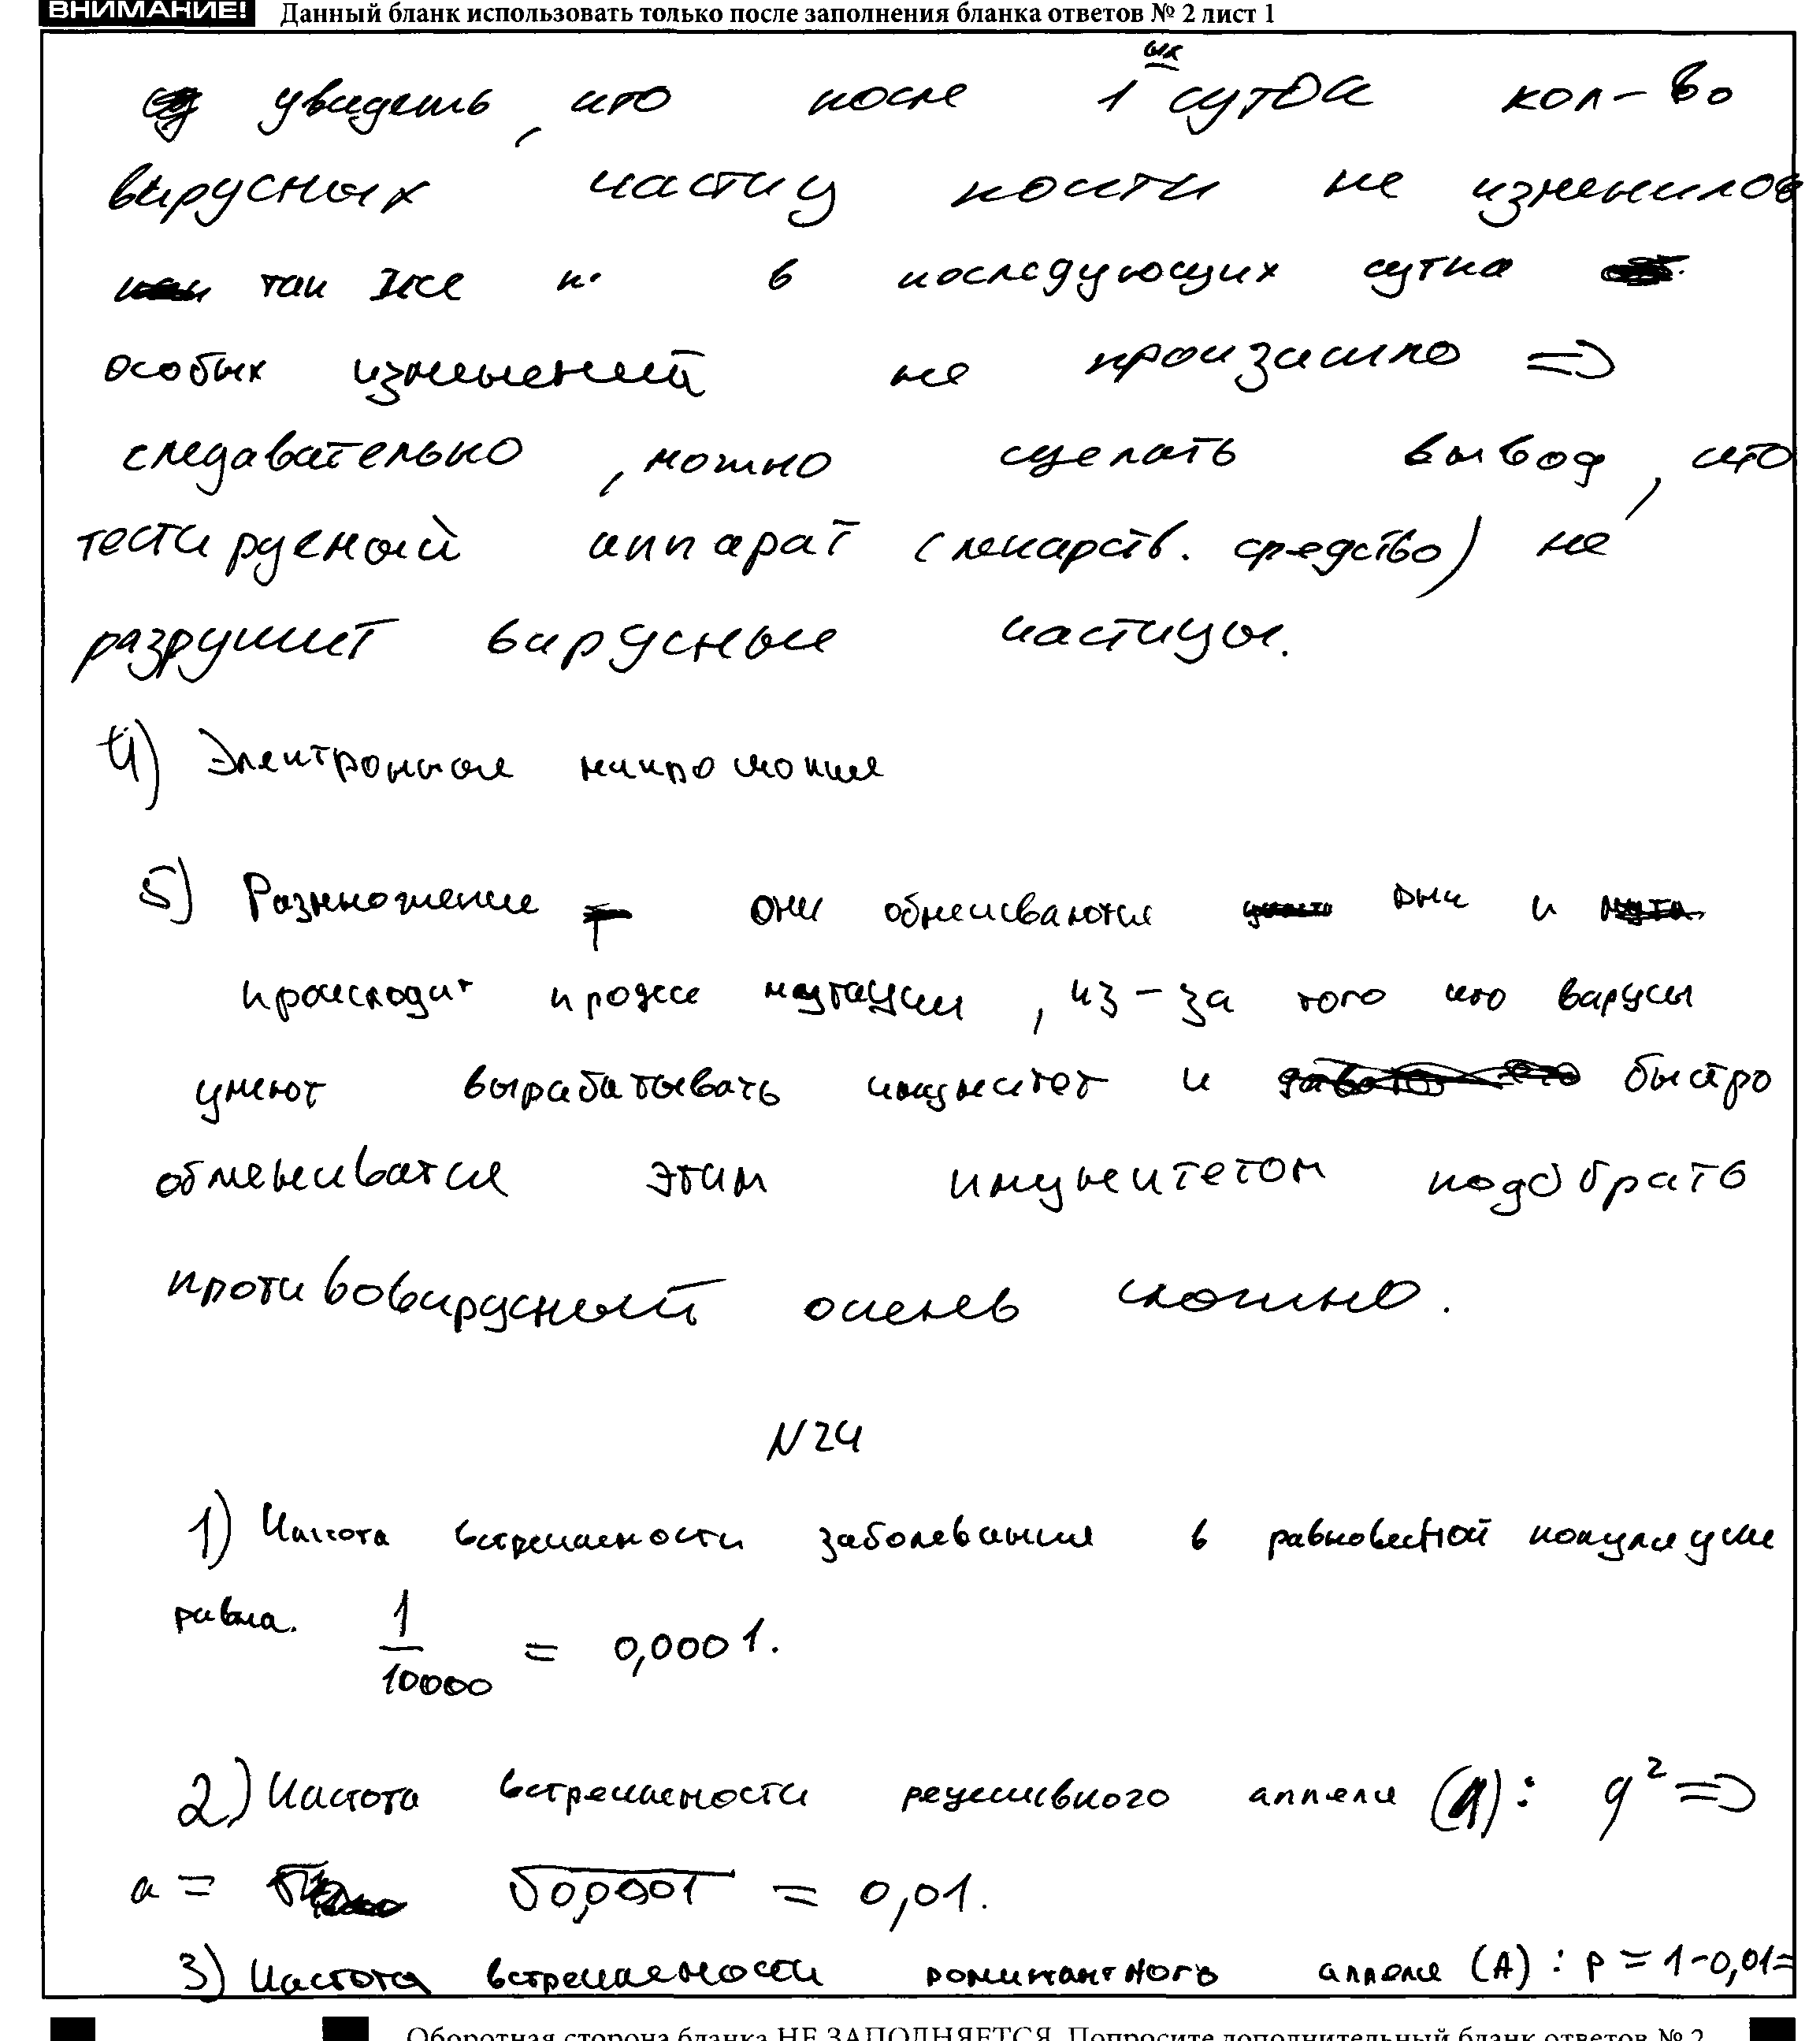 ВНИМАНИЕ! Данный бланк использовать только после заполнения бланка ответов № 2 лист 1
увидеть, что после 1 ых суток кол-во
вирусных частиц почти не изменилось
так же и в последующих сутка
особых изменений не произашло =>
следавательно, можно сделать вывод, что
тестируемый аппарат (лекарств. средство) не
разрушит вирусные частицы.
4) Электронная микроскопия
5) Размножение они обмениваются ДНК и
происходит процесс мутации, из-за того что вирусы
умеют вырабатывать имунитет и быстро
обмениватся этим имунитетом подобрать
противовирусный очень сложно.
N24
1) Частота встречаемости заболевания в равновесной популяции
равна. 1/10000 = 0,0001.
2) Частота встречаемости рецессивного аллеля (q): q² =>
a = √0,0001 = 0,01.
3) Частота встречаемости доминантного аллеля (A): p = 1-0,01=
Оборотная сторона бланка НЕ ЗАПОЛНЯЕТСЯ. Попросите дополнительный бланк ответов № 2